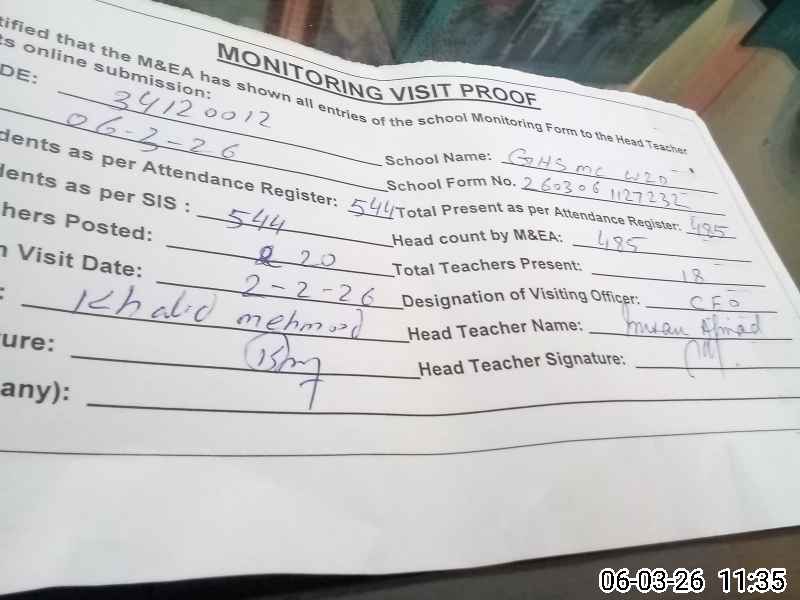 MONITORING VISIT PROOF
tified that the M&EA has shown all entries of the school Monitoring Form to the Head Teacher
ts online submission:
DE: 34120012 School Name: GHS MC WZD
06-3-26 School Form No. 260306 1127232
dents as per Attendance Register: 544 Total Present as per Attendance Register: 485
dents as per SIS : 544 Head count by M&EA: 485
hers Posted: 20 Total Teachers Present: 18
n Visit Date: 2-2-26 Designation of Visiting Officer: CEO
: Khalid mehmood Head Teacher Name: Imran Ahmad
ure: Head Teacher Signature:
any):
06-03-26 11:35